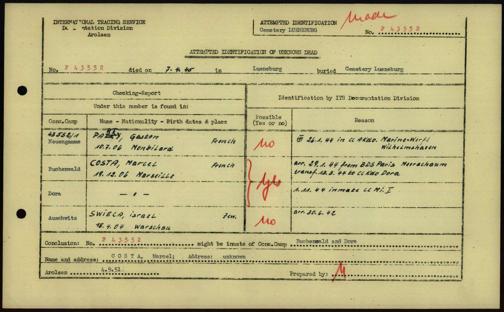 INTERNATIONAL TRACING SERVICE
Documentation Division
Arolsen
ATTEMPTED IDENTIFICATION
Cemetery LUENEBURG
Made
No. F 43552
ATTEMPTED IDENTIFICATION OF UNKNOWN DEAD
No. F 43552 died on 7.4.45 in Lueneburg buried Cemetery Lueneburg
Checking-Report
Under this number is found in:
Identification by ITS Documentation Division
Conc.Camp
Name - Nationality - Birth dates & place
Possible (Yes or no)
Reason
Neuengamme
Gaston French
10.7.06 Montbiliard
no
26.1.44 in
Wilhelmshaven
Buchenwald
COSTA, Marcel French
19.12.06 Marseille
Yes
arr. 29.1.44 from BDS Paris
transf. to CC Dora
Dora
- " -
1.11.44 inmate CC
Auschwitz
SWIECA, Israel Jew.
Warschau
no
arr.
Conclusion: No. F 43552 might be inmate of Conc.Camp Buchenwald and Dora
Name and address: COSTA, Marcel; Address: unknown
Arolsen 4.9.51.
Prepared by: